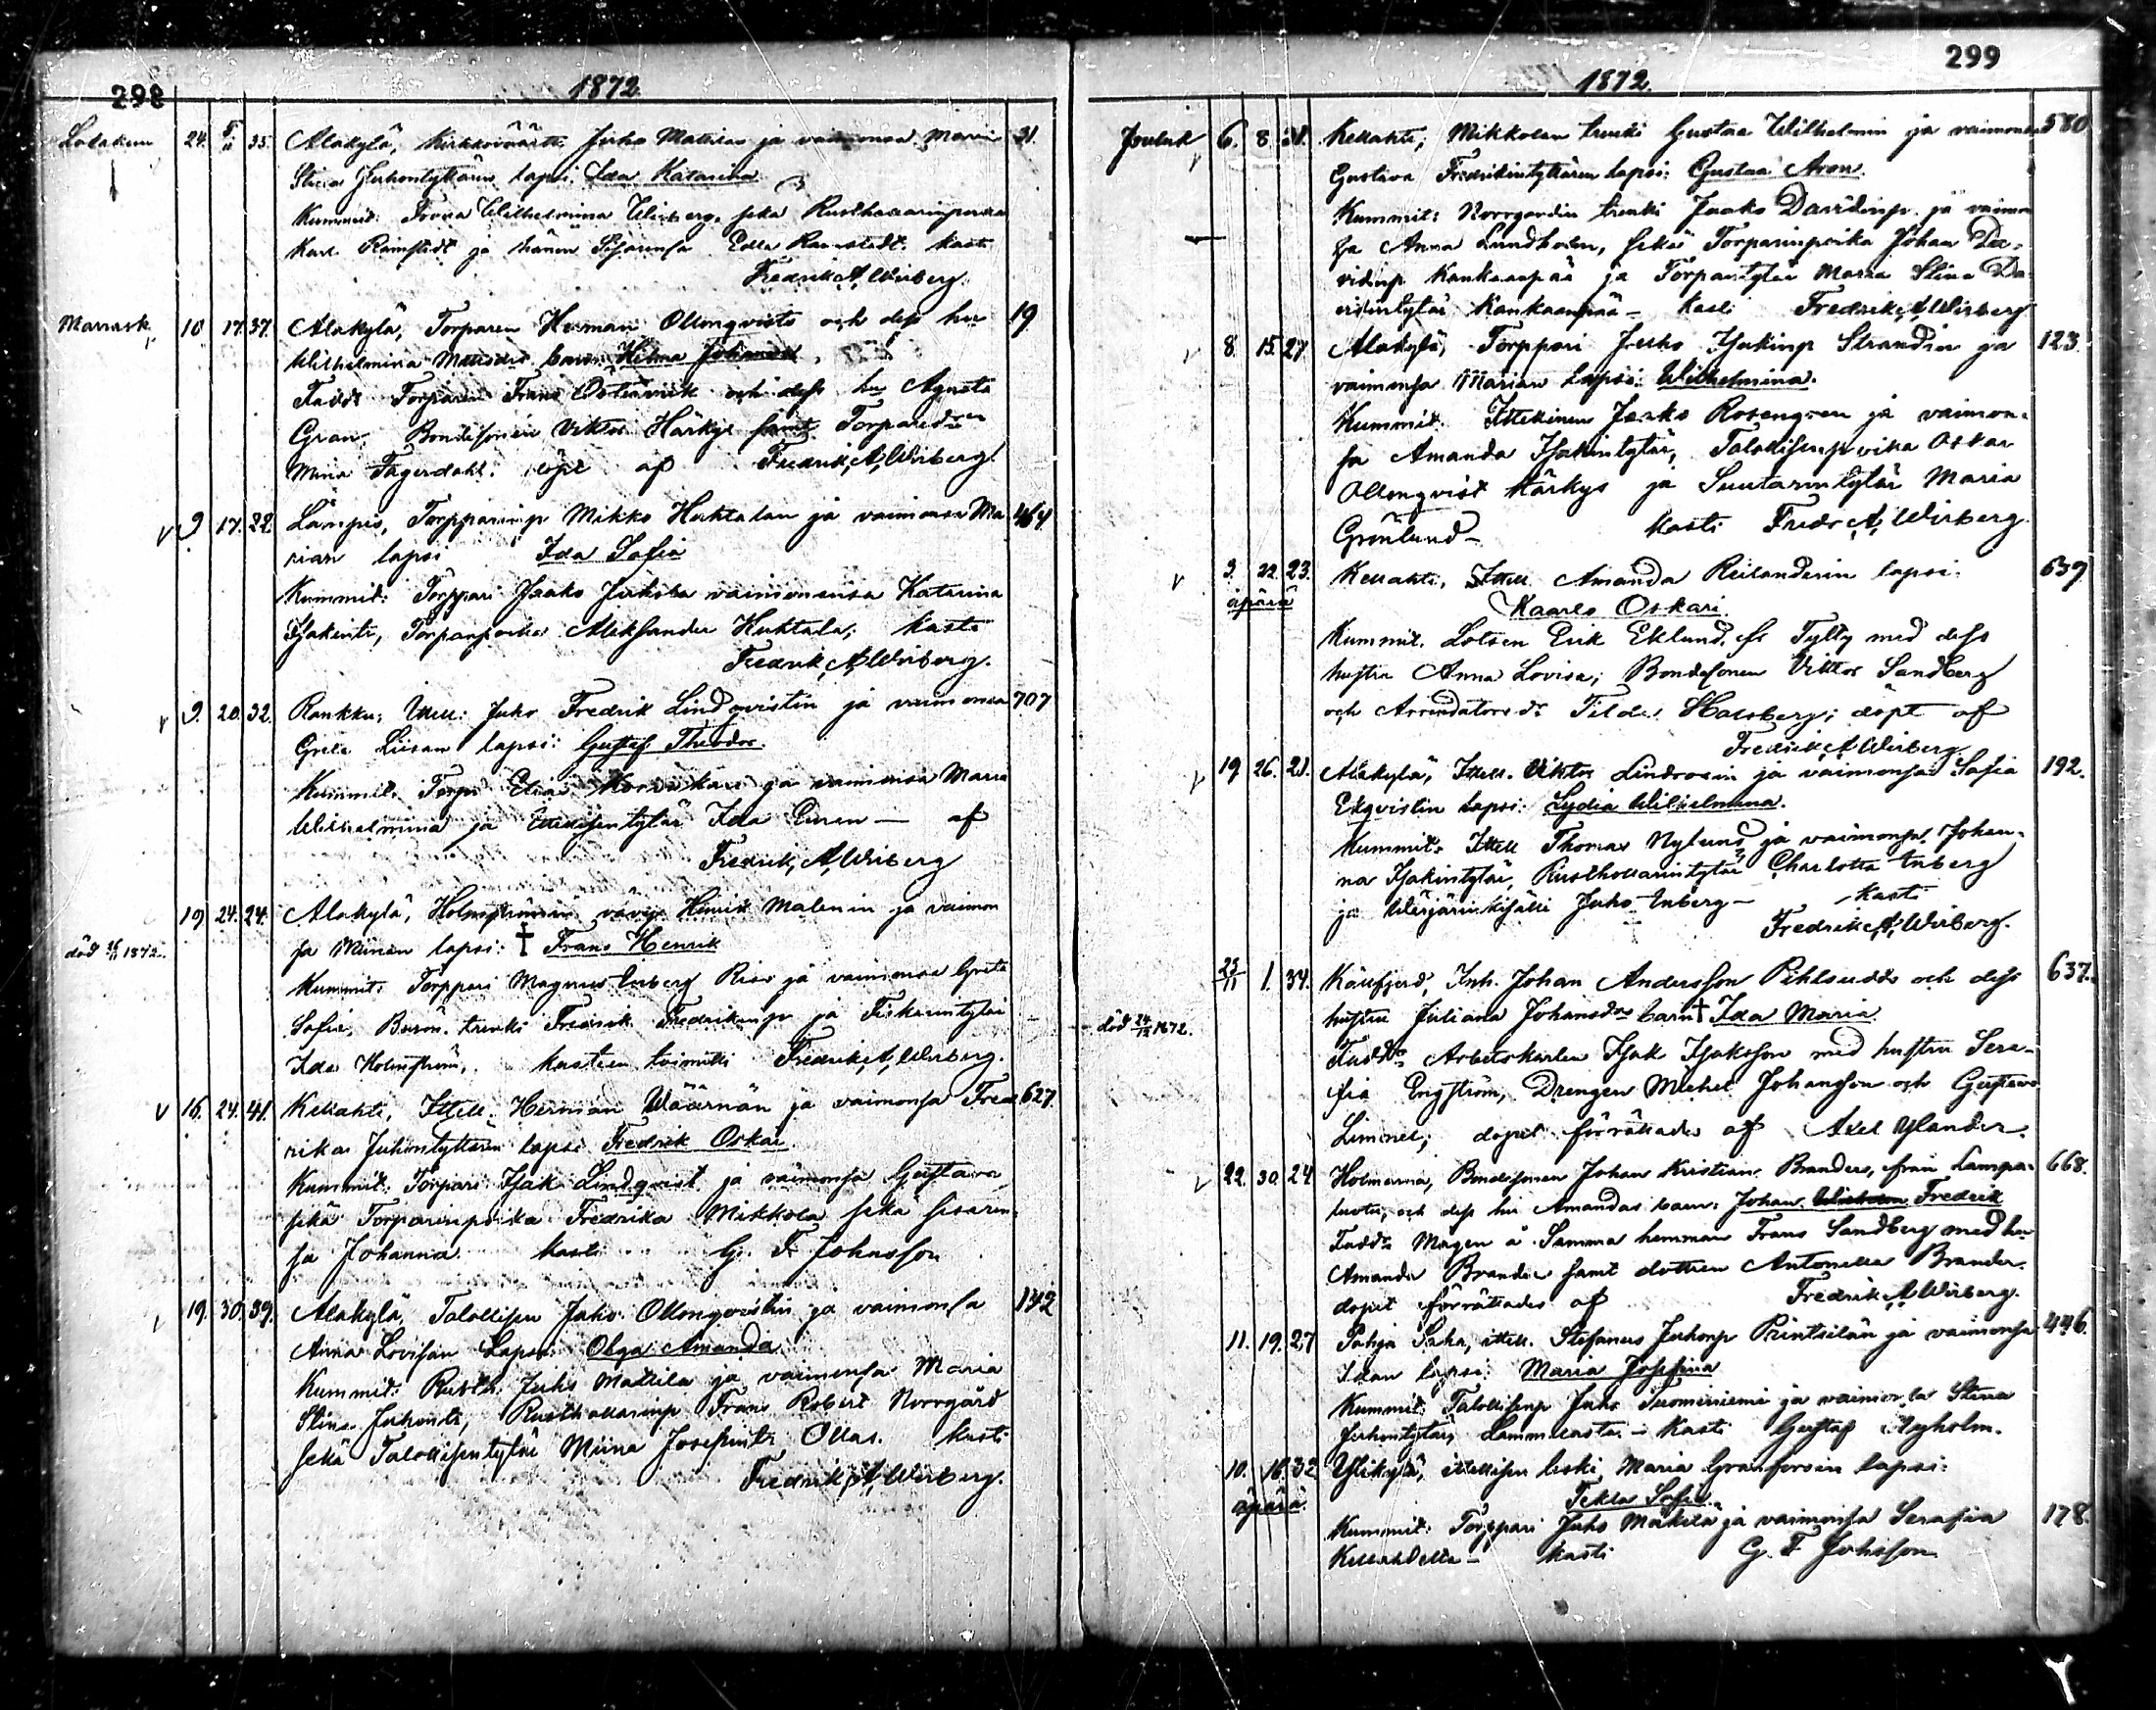 298
1872
Lokakuu 24. 5/11 35. Alakylä, Kirkkoväärti Juho Mattias ja vaimonsa Maria 31.
Stina Juhontyttären lapsi Ida Katarina
Kummit: Frouva Wilhelmina Wirberg, sekä Rusthollarinpoika
Karl Ramstedt ja hänen Sisarensa Edla Ramstedt. kasti
Fredrik A. Wirberg.
Marrask. 10 17. 37. Alakylä, Torparen Herman Ollonqvists och dess hu 19
Wilhelmina Mattsdrs barn: Hilma Johanna
Fadd: Torparen Frans Österviik och dess hu Agneta
Gran, Bondesonen Viktor Härkys samt Torparedren
Mina Fagerdahl. döpt af Fredrik A. Wirberg.
v 9. 17. 22. Lampis, Torpparinp Mikko Huhtalan ja vaimonsa Ma 464
rian lapsi Ida Sofia
Kummit: Torppari Jaako Juhola vaimonensa Katarina
Isakintr, Torparpoika Aleksander Huhtala; kasti
Fredrik A. Wirberg.
v 9. 20. 32. Rankku; Ittell: Juho Fredrik Lindqvistin ja vaimonsa 707
Greta Liisan lapsi: Gustaf Theodor.
Kummit. Torp Elias ja vaimonsa Maria
Wilhelmina ja Ittellisentytär Ida Euren — af
Fredrik A. Wirberg
19 24. 24. Alakylä, Holmströmin vävy Henrik Malenin ja vaimon
död 26/11 1872. sa Minan lapsi: † Frans Henrik
Kummit: Torppari Magnus Enberg Riso ja vaimonsa Greta
Sofia, trenki Fredrik Fredrikinp ja Fiskarintytär
Ida Holmström, Kasteen toimitti Fredrik A. Wirberg.
v 16. 24. 41. Kellahti, Ittell. Herman Wäärnän ja vaimonsa Fred 627.
rika Juhontyttären lapsi Fredrik Oskar.
Kummit: Torpari Isak Lindqvist ja vaimonsa Gustava
sekä Torparinpoika Fredrika Mikkola seka sisaren
sa Johanna. kasti G. F. Johnsson
19. 30. 39. Alakylä, Talollisen Juho Ollonqvistin ja vaimonsa 142
Anna Lovisan Lapsi: Olga Amanda
Kummit: Rusth. Juho Mattila ja vaimonsa Maria
Stina Juhontr, Rusthollarinp Frans Robert Norrgård
sekä Talollisentytär Miina Josefintr Ollas. kasti
Fredrik A. Wirberg.
299
1872.
Jouluk 6. 8. 31. Kellahti; Mikkolan trenki Gustaa Wilhelmin ja vaimonsa 580
Gustava Fredrikintyttären lapsi: Gustaa Aron.
Kummit: Norrgardin trenki Jaako Davidinp ja vaimon
sa Anna Lundholm, sekä Torparinpoika Johan Da-
vidinp Kankaanpää ja Torparintytär Maria Stina Da-
vidintytär Kankaanpää — kasti Fredrik A. Wirberg
v 8. 15. 27 Alakylä, Torppari Juho Isakinp Strandin ja 123.
vaimonsa Marian Lapsi: Wilhelmina.
Kummit. Ittellinen Jaako Rosengren ja vaimon-
sa Amanda Isakintytär, Talollisenpoika Oskar
Ollonqvist Härkys ja Suutarintytär Maria
Grönlund — kasti Fredr A. Wirberg
v 9. 22. 23. Kellahti, Ittell Amanda Reilanderin lapsi. 639
äpärä Kaarlo Oskari.
Kummit. Lotsen Erik Eklund, fr Tylty med dess
hustru Anna Lovisa; Bondesonen Viktor Sandberg
och Arrendators dr Tilda Halsberg; döpt af
Fredrik A. Wirberg.
v 19 26. 21. Alakylä, Ittell. Viktor Lindroosin ja vaimonsa Sofia 192.
Ekqvistin lapsi: Lydia Wilhelmina.
Kummit: Ittell Thomas Nylund ja vaimonsa Johan-
na Isakintytär, Rusthollarintytär Charlotta Enberg
ja Wärjärinkisälli Juho Enberg — kasti
Fredrik A. Wirberg.
25/11 1. 34. Kärefjerd, Inh. Johan Andersson Pihlsudds och dess 637.
hustru Juliana Johansdrs barn † Ida Maria
död 24/12 1872. Faddr Arbetskarlen Isak Isaksson med hustru Sera-
fia Engström, Drengen Mickel Johansson och Gustava
Limnel; dopet förrättades af Axel Ylander.
v 22. 30. 24 Holmarna, Bondesonen Johan Kristian Branders, från Lampa- 668.
luoto, och dess hu Amandas barn: Johan Fredrik
Faddr Magen å Samma hemman Frans Sandberg med hu
Amanda Brander samt dottren Antonetta Brander.
dopet förrättades af Fredrik A. Wirberg.
11. 19. 27 Pohja Saha, ittell. Stefanus Juhonp Printsilän ja vaimonsa 446.
Idan lapsi: Maria Josefina
Kummit: Talollisenp Juho Tuominiemi ja vaimonsa Stina
Juhontytär, Lammluoto — kasti Gustaf Nyholm.
10. 16. 32 Ylikylä, ittellisen leski Maria Granforsin lapsi:
äpärä. Tekla Sofia.
Kummit: Torppari Juho Mäkelä ja vaimonsa Serafia 178.
Kellahdella — kasti G. F. Johnsson